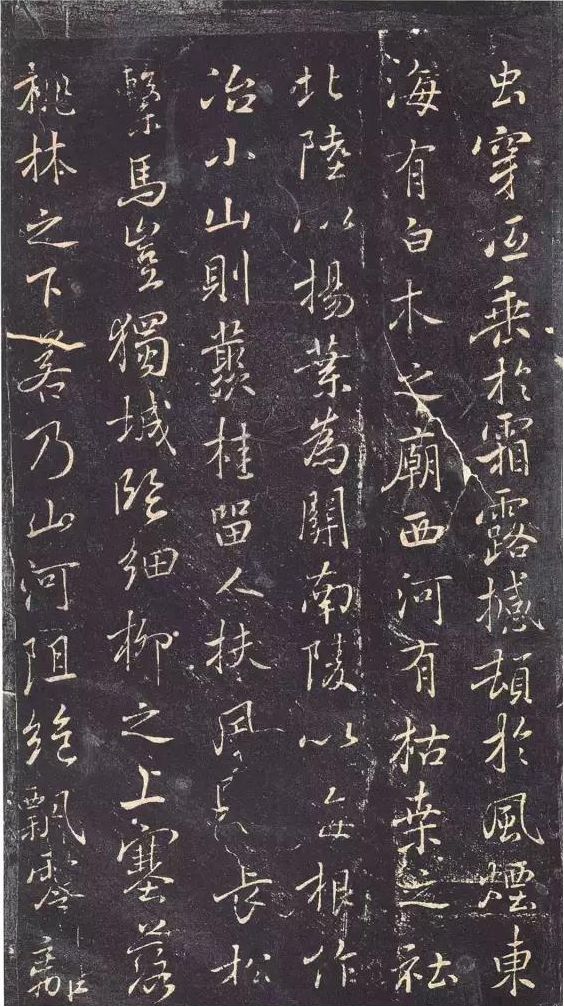 虫穿低垂於霜露撼頓於風煙東
海有白木之廟西河有枯桑之社
北陸以楊葉為關南陵以每根作
冶小山則叢桂留人扶風長長松
繫馬豈獨城臨細柳之上塞落
桃林之下若乃山河阻絕飄零離